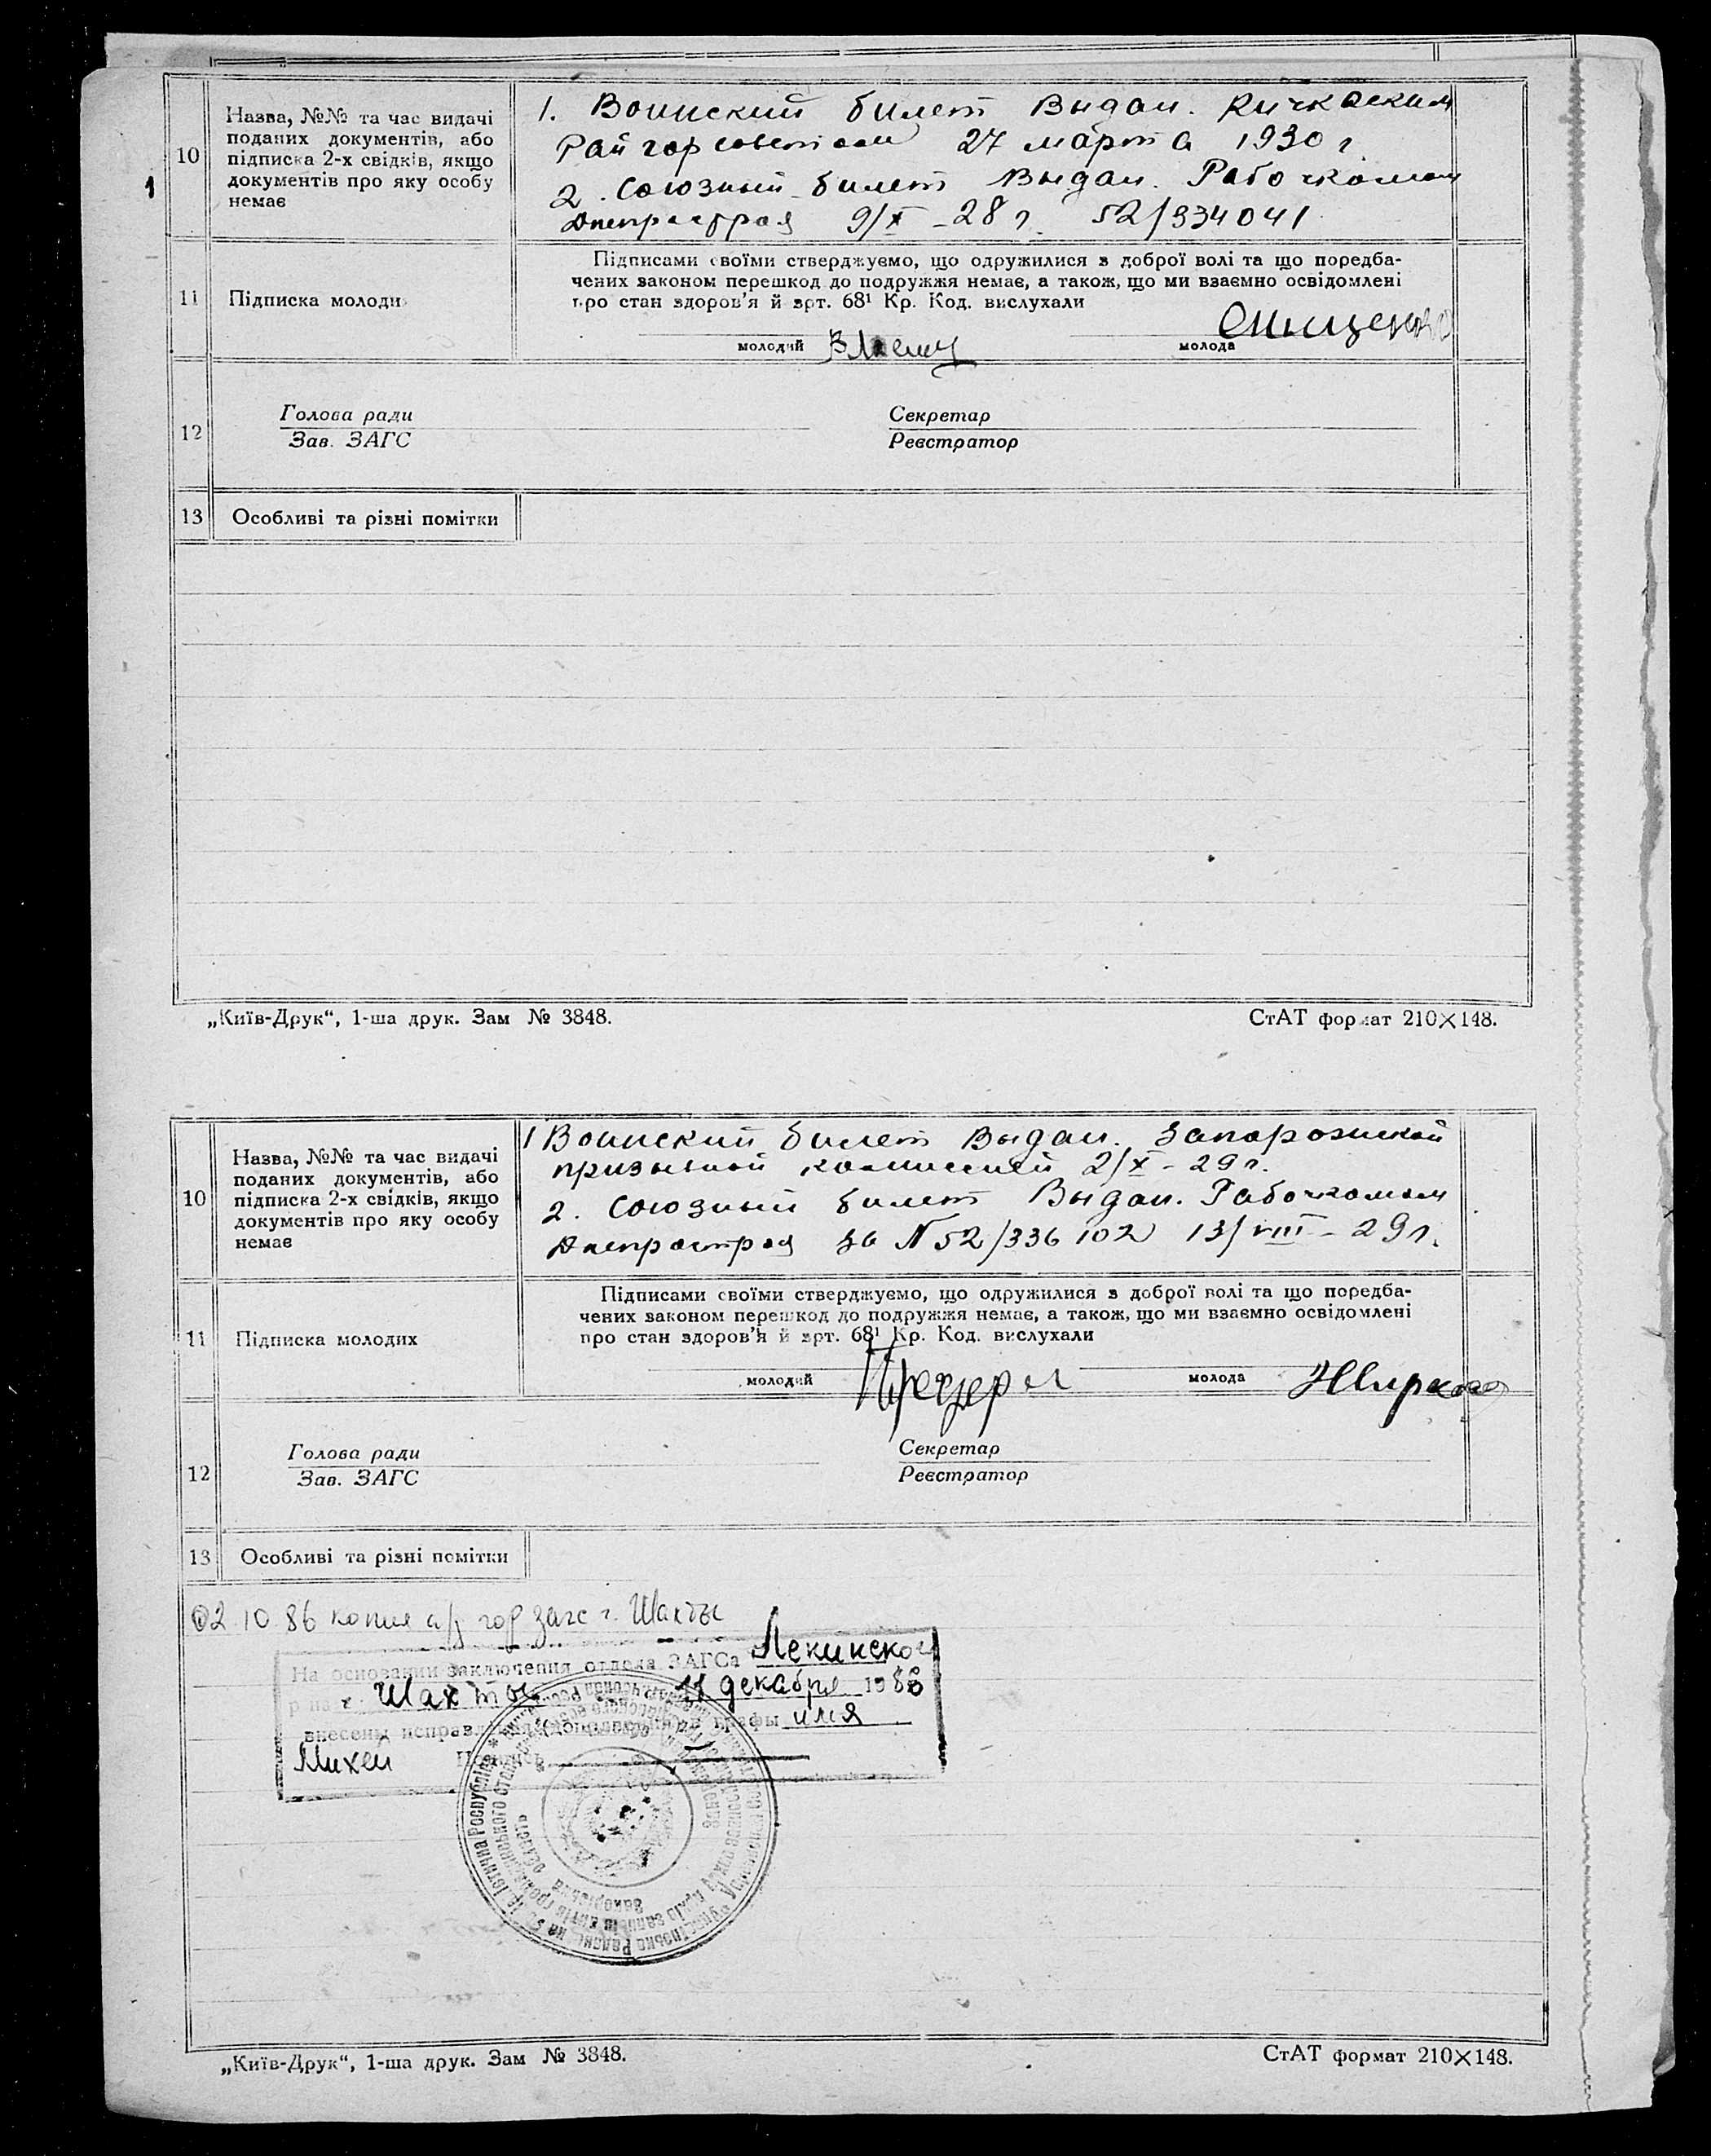 1
10
Назва, №№ та час видачі
поданих документів, або
підписка 2-х свідків, якщо
документів про яку особу
немає
1. Воинский билет Выдан. Кичкаским
Райгорсоветом 27 марта 1930 г.
2. Союзный билет Выдан. Рабочкомом
Днепростроя 9/X - 28 г. 52/334041
11
Підписка молоди
Підписами своїми стверджуємо, що одружилися з доброї волі та що поредба-
чених законом перешкод до подружжя немає, а також, що ми взаємно освідомлені
про стан здоров'я й арт. 68¹ Кр. Код. вислухали
молодий
молода
12
Голова ради
Зав. ЗАГС
Секретар
Реєстратор
13
Особливі та різні помітки
„Київ-Друк“, 1-ша друк. Зам № 3848.
СтАТ формат 210×148.
10
Назва, №№ та час видачі
поданих документів, або
підписка 2-х свідків, якщо
документів про яку особу
немає
1 Воинский билет Выдан. Запорожской
призывной комиссией 2/X - 29 г.
2. Союзный билет Выдан. Рабочкомом
Днепростроя за N 52/336 102 13/VIII - 29 г.
11
Підписка молодих
Підписами своїми стверджуємо, що одружилися з доброї волі та що поредба-
чених законом перешкод до подружжя немає, а також, що ми взаємно освідомлені
про стан здоров'я й арт. 68¹ Кр. Код. вислухали
молодий
молода
12
Голова ради
Зав. ЗАГС
Секретар
Реєстратор
13
Особливі та різні помітки
02 10 86 копия а/з гор загс г. Шахты
На основании заключения отдела ЗАГСа Ленинской
р на г. Шахты 11 декабря 1986
внесены исправления графы имя
Михей Подпись
„Київ-Друк“, 1-ша друк. Зам № 3848.
СтАТ формат 210×148.